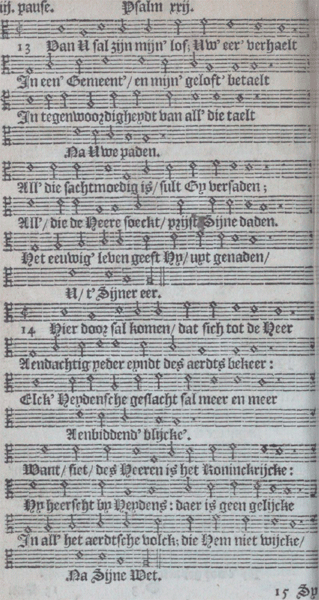 iij. pause. Psalm xxij.
13 Van U sal zijn mijn' lof; Uw' eer' verhaelt
In een' Gemeent'/ en mijn' geloft' betaelt
In tegenwoordigheydt van all' die taelt
Na Uwe paden.
All' die sachtmoedig is/ sult Gy versaden;
All'/ die de Heere soeckt/ prijst Sijne daden.
Het eeuwig' leven geeft Hy/ uyt genaden/
U/ t' Sijner eer.
14 Hier door sal komen/ dat sich tot de Heer
Aendachtig yeder eyndt des aerdts bekeer:
Elck' Heydensche geslacht sal meer en meer
Aenbiddend' blijcke'.
Want/ siet/ des Heeren is het Koninckrijcke:
Hy heerscht by Heydens: daer is geen gelijcke
In all' het aerdtsche volck; die Hem niet wijcke/
Na Sijne Wet.
15 Sy